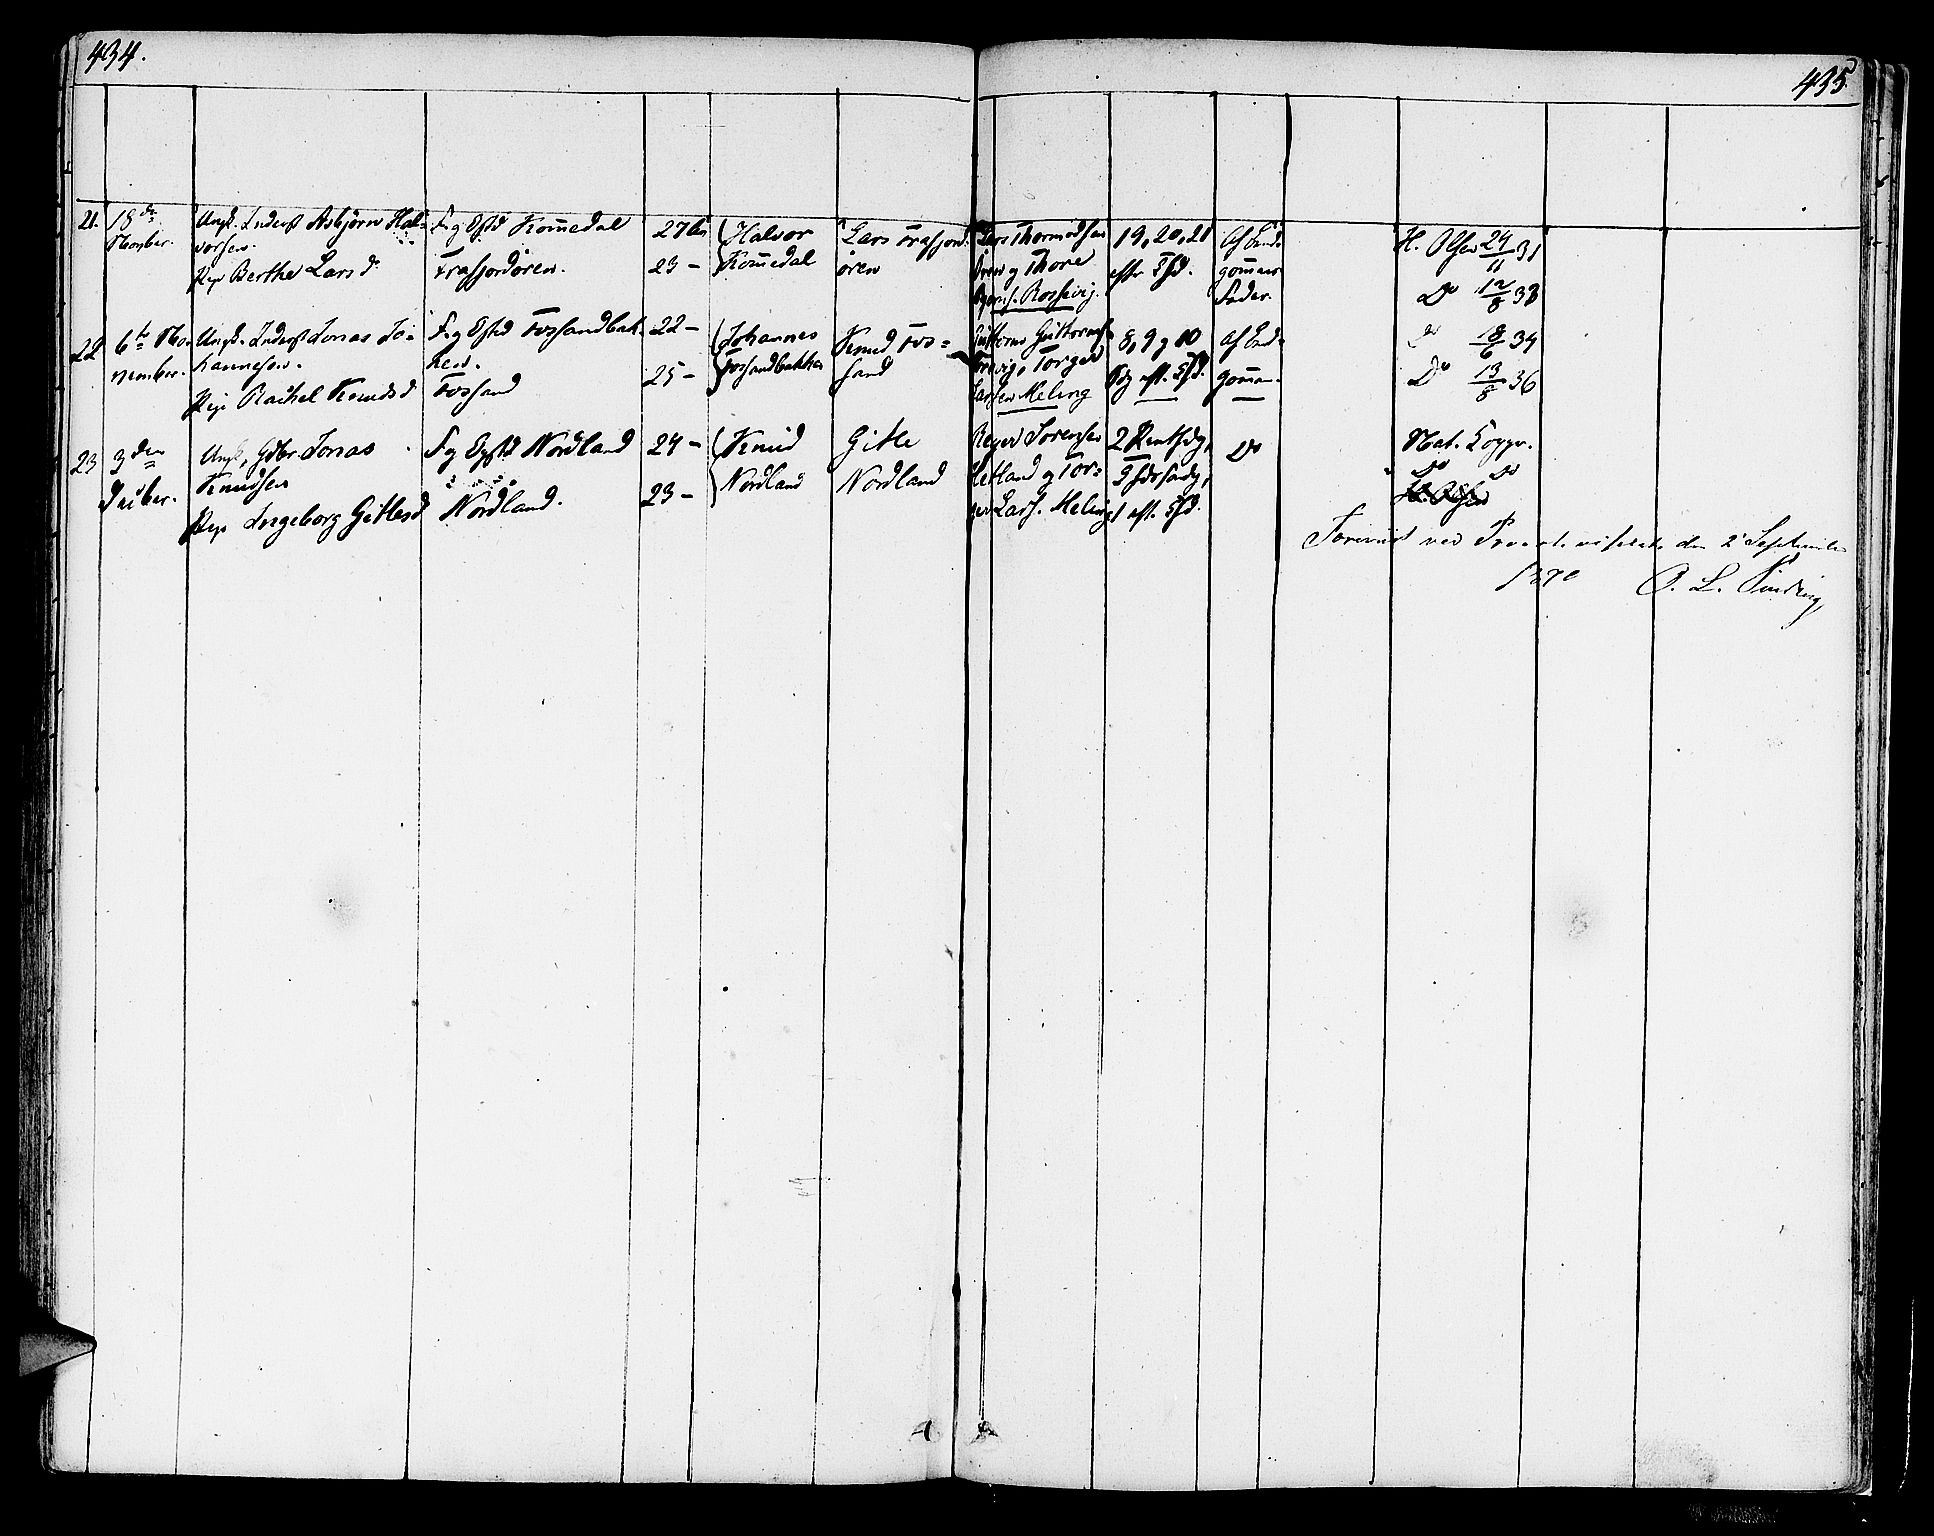 434.
435.
21.
18de
Novber.
Ungk. Inderst Asbjørn Hal=
vorsen.
Pige Berthe Larsd.
F. og Opfd Kommedal
Frafjordøren.
27 Aar
23 -
Halvor
Kommedal
Lars Frafjord
øren
Lars Thormodsen
Øren og Thore
Bjørns. Rossavig.
19, 20, 21
eftr Tfd.
Af Brud=
gommens
Fader.
H. Olsen 24/11 31
Do 12/8 33
22
6te No=
vember.
Ungk. Inderst Jonas Jo=
hannesen.
Pige Rachel Knudsd
F. og Opfd Fossandbak=
ken.
Fossand
22 -
25 -
Johannes
Fossandbakken
Knud Fos=
sand
Guttorm Guttormsen
Torger
Larsen Meling
8, 9 og 10
Sdg eft. Tfd.
Af Brud=
gommen.
do 18/6 34
Do 13/8 36
23
3den
Deceber.
Ungk, Gdbr Jonas
Knudsen
Pige Ingeborg Gitlesd
F. og Opfd Nordland
Nordland.
24 -
23 -
Knud
Nordland
Gitle
Nordland
Reyer Sorensen
Hetland og Tor=
ger Lars. Meling
eft. Tfd.
Do
Nat. Kopper.
Do Do
H. Olsen
Foreviist ved Provstevisitats den 2 September
1870 O. L. Sinding,